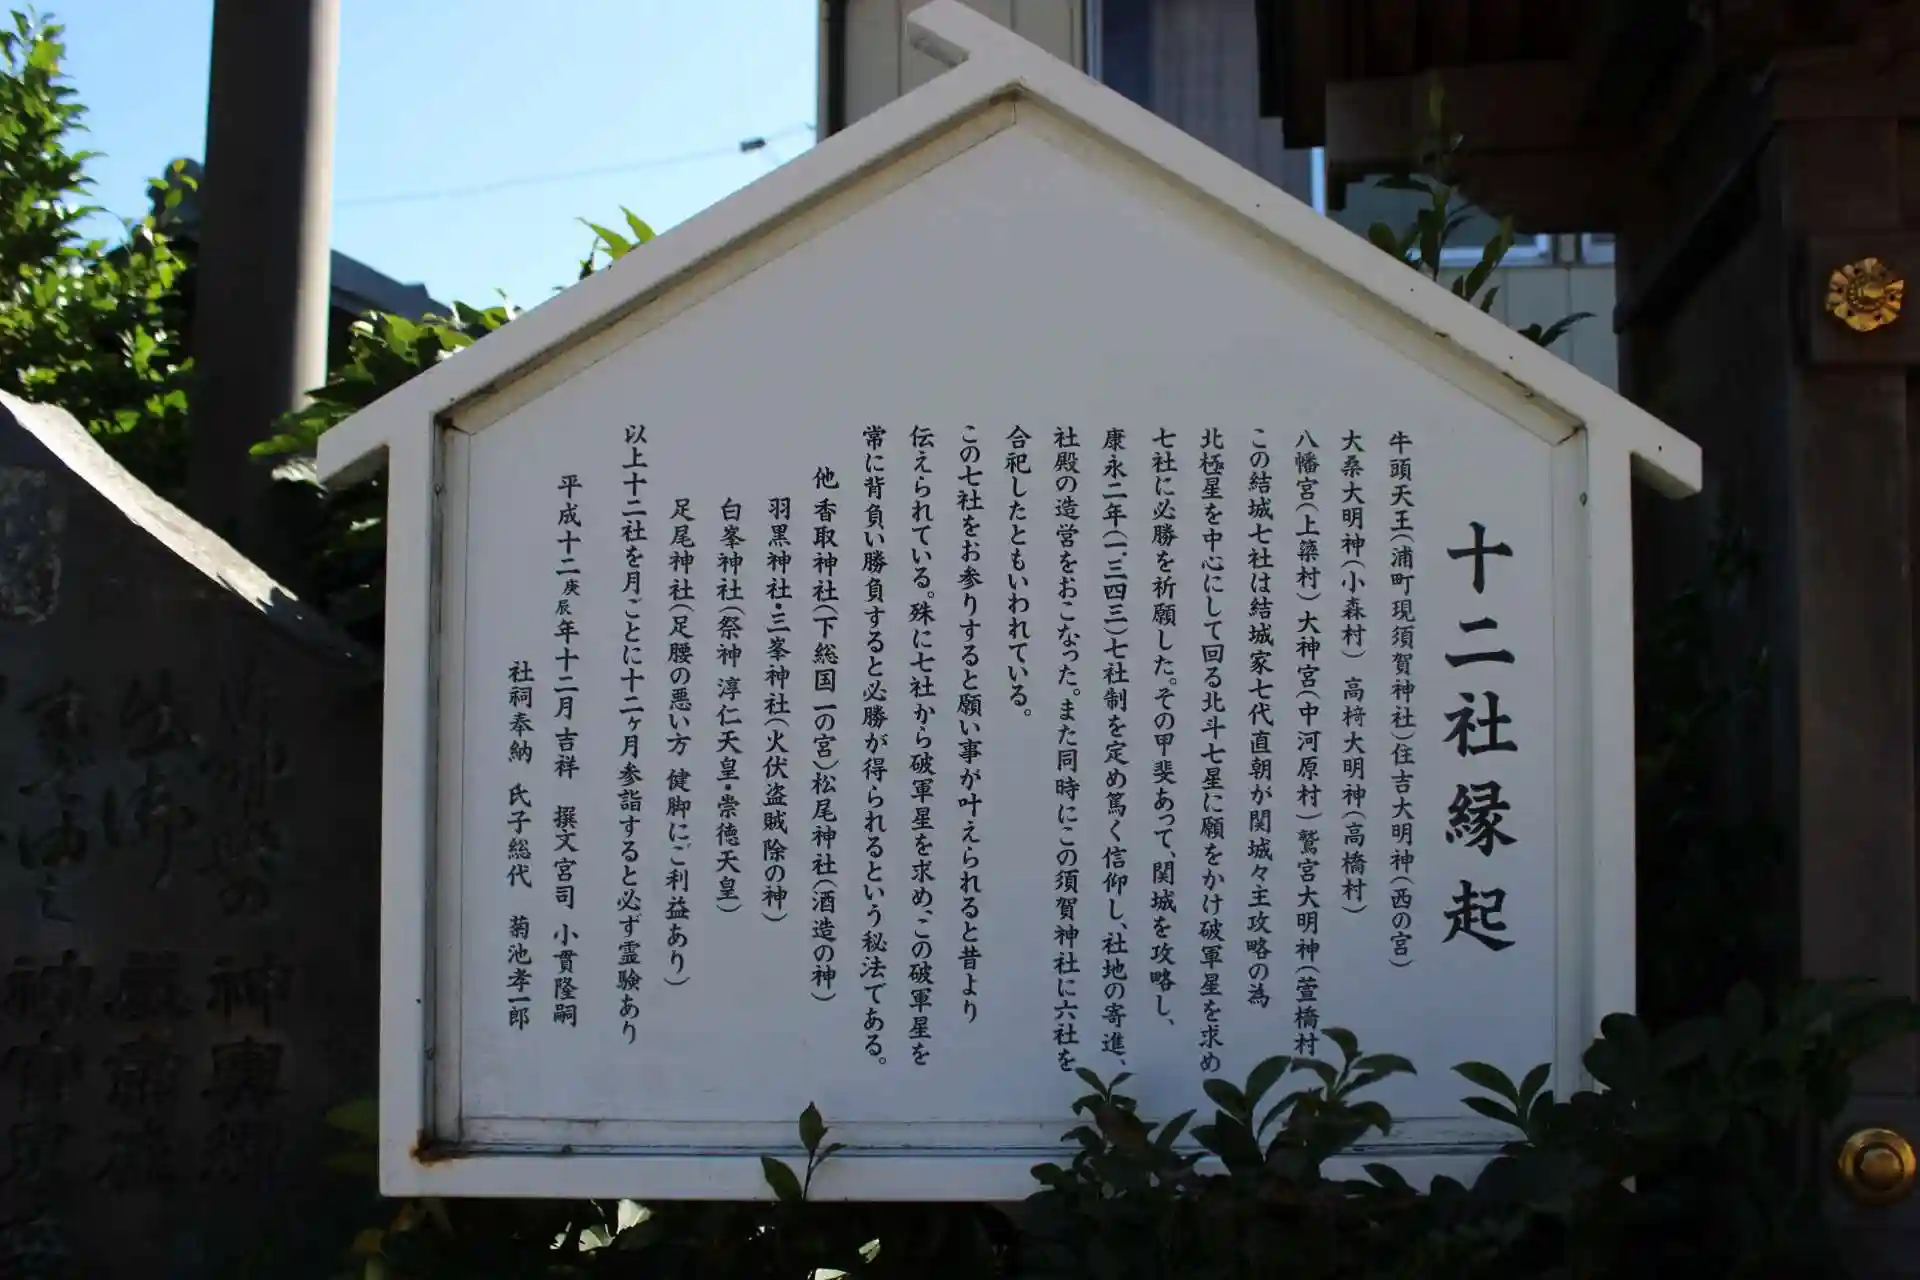 十二社縁起
牛頭天王(浦町現須賀神社)住吉大明神(西の宮)
大桑大明神(小森村)高椅大明神(高橋村)
八幡宮(上簗村)大神宮(中河原村)鷲宮大明神(萱橋村
この結城七社は結城家七代直朝が関城々主攻略の為
北極星を中心にして回る北斗七星に願をかけ破軍星を求め
七社に必勝を祈願した。その甲斐あって、関城を攻略し、
康永二年(一、三四三)七社制を定め篤く信仰し、社地の寄進、
社殿の造営をおこなった。また同時にこの須賀神社に六社を
合祀したともいわれている。
この七社をお参りすると願い事が叶えられると昔より
伝えられている。殊に七社から破軍星を求め、この破軍星を
常に背負い勝負すると必勝が得られるという秘法である。
他 香取神社(下総国一の宮)松尾神社(酒造の神)
羽黒神社・三峯神社(火伏盗賊除の神)
白峯神社(祭神 淳仁天皇・崇徳天皇)
足尾神社(足腰の悪い方 健脚にご利益あり)
以上十二社を月ごとに十二ヶ月参詣すると必ず霊験あり
平成十二庚辰年十二月吉祥 撰文宮司 小貫隆嗣
社祠奉納 氏子総代 菊池孝一郎